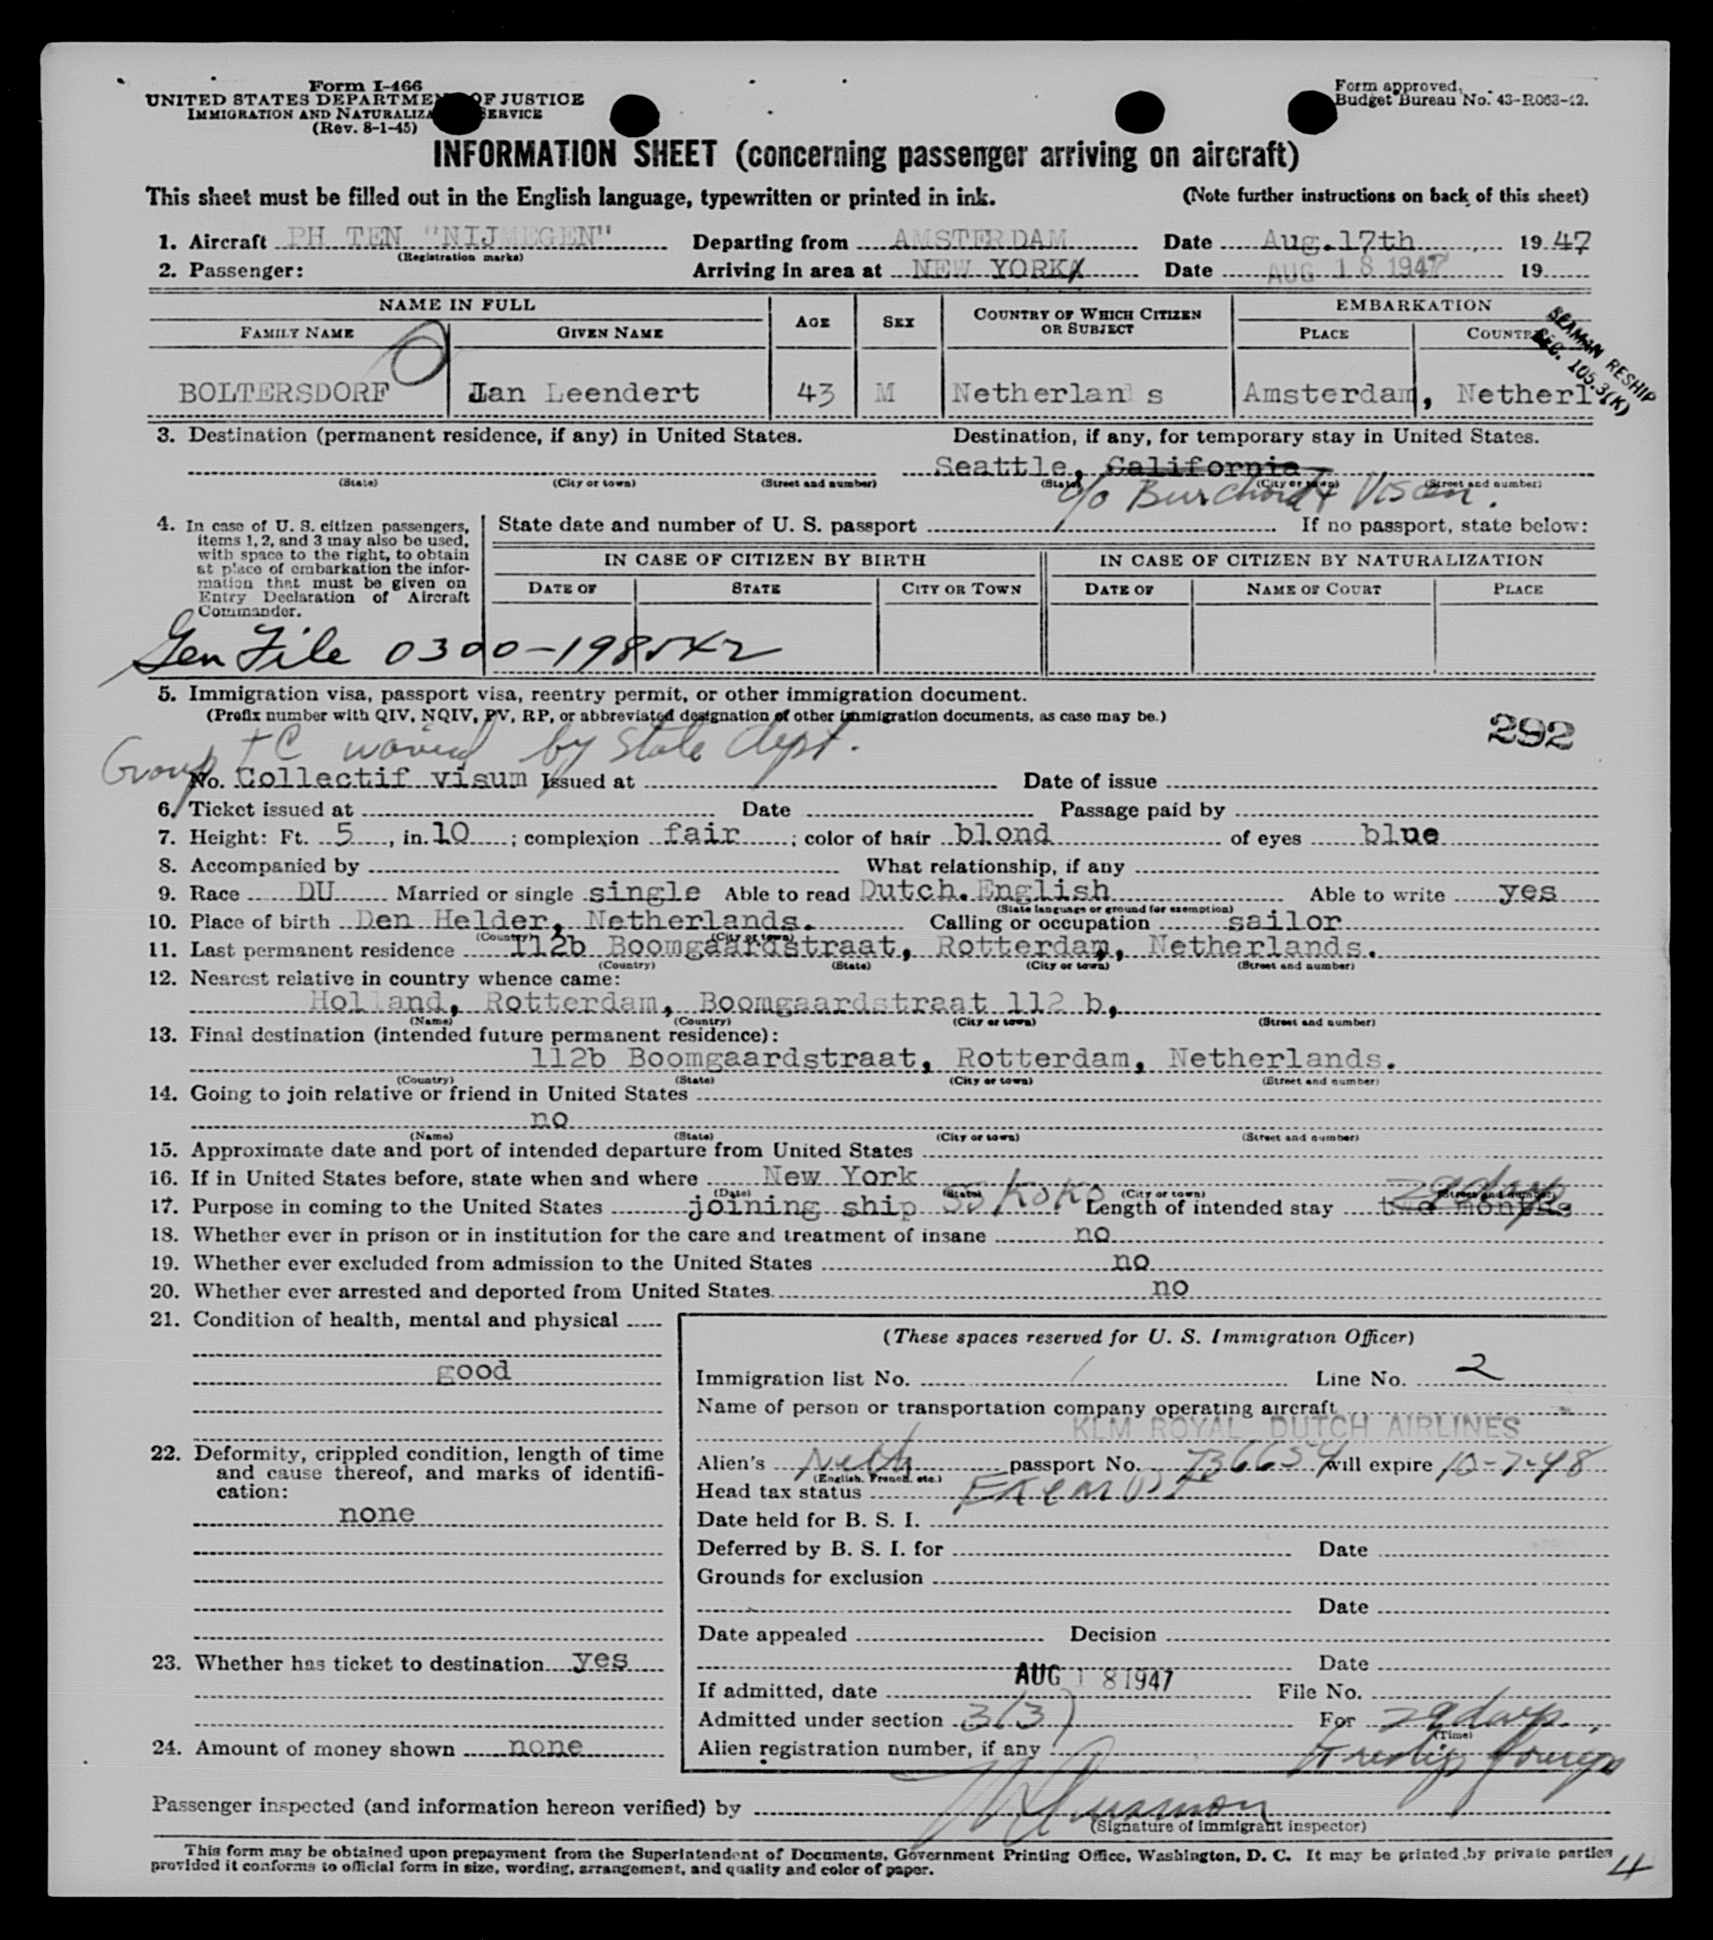 Form I-466
UNITED STATES DEPARTMENT OF JUSTICE
IMMIGRATION AND NATURALIZATION SERVICE
(Rev. 8-1-45)
Form approved.
Budget Bureau No. 43-R063-42.
INFORMATION SHEET (concerning passenger arriving on aircraft)
This sheet must be filled out in the English language, typewritten or printed in ink. (Note further instructions on back of this sheet)
1. Aircraft PH TEN "NIJMEGEN" Departing from AMSTERDAM Date Aug.17th 1947
(Registration marks)
2. Passenger: Arriving in area at NEW YORK Date AUG 18 1947 19
NAME IN FULL AGE SEX COUNTRY OF WHICH CITIZEN OR SUBJECT EMBARKATION
FAMILY NAME GIVEN NAME PLACE COUNTRY
SEAMAN RESHIP
SEC. 105.3(K)
BOLTERSDORF Jan Leendert 43 M Netherlands Amsterdam, Netherl
3. Destination (permanent residence, if any) in United States. Destination, if any, for temporary stay in United States.
Seattle, California
(State) (City or town) (Street and number) (State) (City or town) (Street and number)
c/o Burchard & Viscen.
4. In case of U. S. citizen passengers, items 1, 2, and 3 may also be used, with space to the right, to obtain at place of embarkation the information that must be given on Entry Declaration of Aircraft Commander.
State date and number of U. S. passport If no passport, state below:
IN CASE OF CITIZEN BY BIRTH IN CASE OF CITIZEN BY NATURALIZATION
DATE OF STATE CITY OR TOWN DATE OF NAME OF COURT PLACE
Gen File 0300-198542
5. Immigration visa, passport visa, reentry permit, or other immigration document.
(Prefix number with QIV, NQIV, PV, RP, or abbreviated designation of other immigration documents, as case may be.)
292
Group TC waived by State Dept.
No. Collectif visum Issued at Date of issue
6. Ticket issued at Date Passage paid by
7. Height: Ft. 5, in. 10; complexion fair; color of hair blond of eyes blue
8. Accompanied by What relationship, if any
9. Race DU Married or single single Able to read Dutch.English Able to write yes
(State language or ground for exemption)
10. Place of birth Den Helder, Netherlands. Calling or occupation sailor
(Country) (City or town)
11. Last permanent residence 112b Boomgaardstraat, Rotterdam, Netherlands.
(Country) (State) (City or town) (Street and number)
12. Nearest relative in country whence came:
Holland, Rotterdam, Boomgaardstraat 112 b,
(Name) (Country) (City or town) (Street and number)
13. Final destination (intended future permanent residence):
112b Boomgaardstraat, Rotterdam, Netherlands.
(Country) (State) (City or town) (Street and number)
14. Going to join relative or friend in United States
no
(Name) (State) (City or town) (Street and number)
15. Approximate date and port of intended departure from United States
16. If in United States before, state when and where New York
(Date) (State) (City or town) (Street and number)
17. Purpose in coming to the United States joining ship SS KOKO Length of intended stay two months 29 days
18. Whether ever in prison or in institution for the care and treatment of insane no
19. Whether ever excluded from admission to the United States no
20. Whether ever arrested and deported from United States no
21. Condition of health, mental and physical
good
22. Deformity, crippled condition, length of time and cause thereof, and marks of identification:
none
23. Whether has ticket to destination yes
24. Amount of money shown none
(These spaces reserved for U. S. Immigration Officer)
Immigration list No. Line No. 2
Name of person or transportation company operating aircraft
KLM ROYAL DUTCH AIRLINES
Alien's Neth passport No. 736654 will expire 10-7-48
(English, French, etc.)
Head tax status Exempt
Date held for B. S. I.
Deferred by B. S. I. for Date
Grounds for exclusion
Date
Date appealed Decision
Date
If admitted, date AUG 18 1947 File No.
Admitted under section 3(3) For 29 days
(Time)
Alien registration number, if any reship foreign
Passenger inspected (and information hereon verified) by
(Signature of immigrant inspector)
This form may be obtained upon prepayment from the Superintendent of Documents, Government Printing Office, Washington, D. C. It may be printed by private parties
provided it conforms to official form in size, wording, arrangement, and quality and color of paper.
4